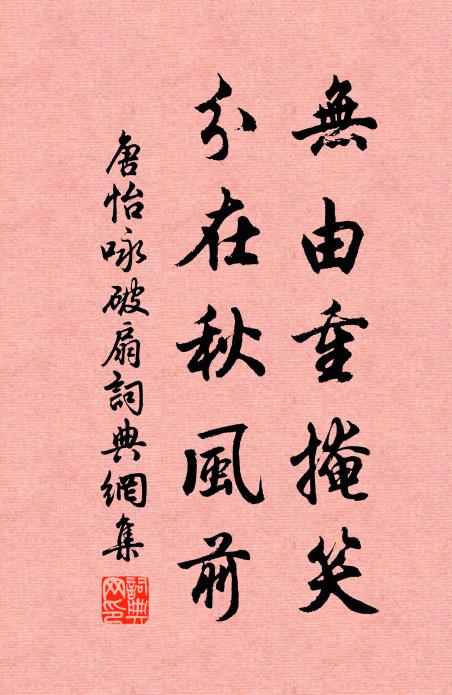 無由重掩笑
分在秋風前
唐怡咏破扇詞典網集
詞典
网印